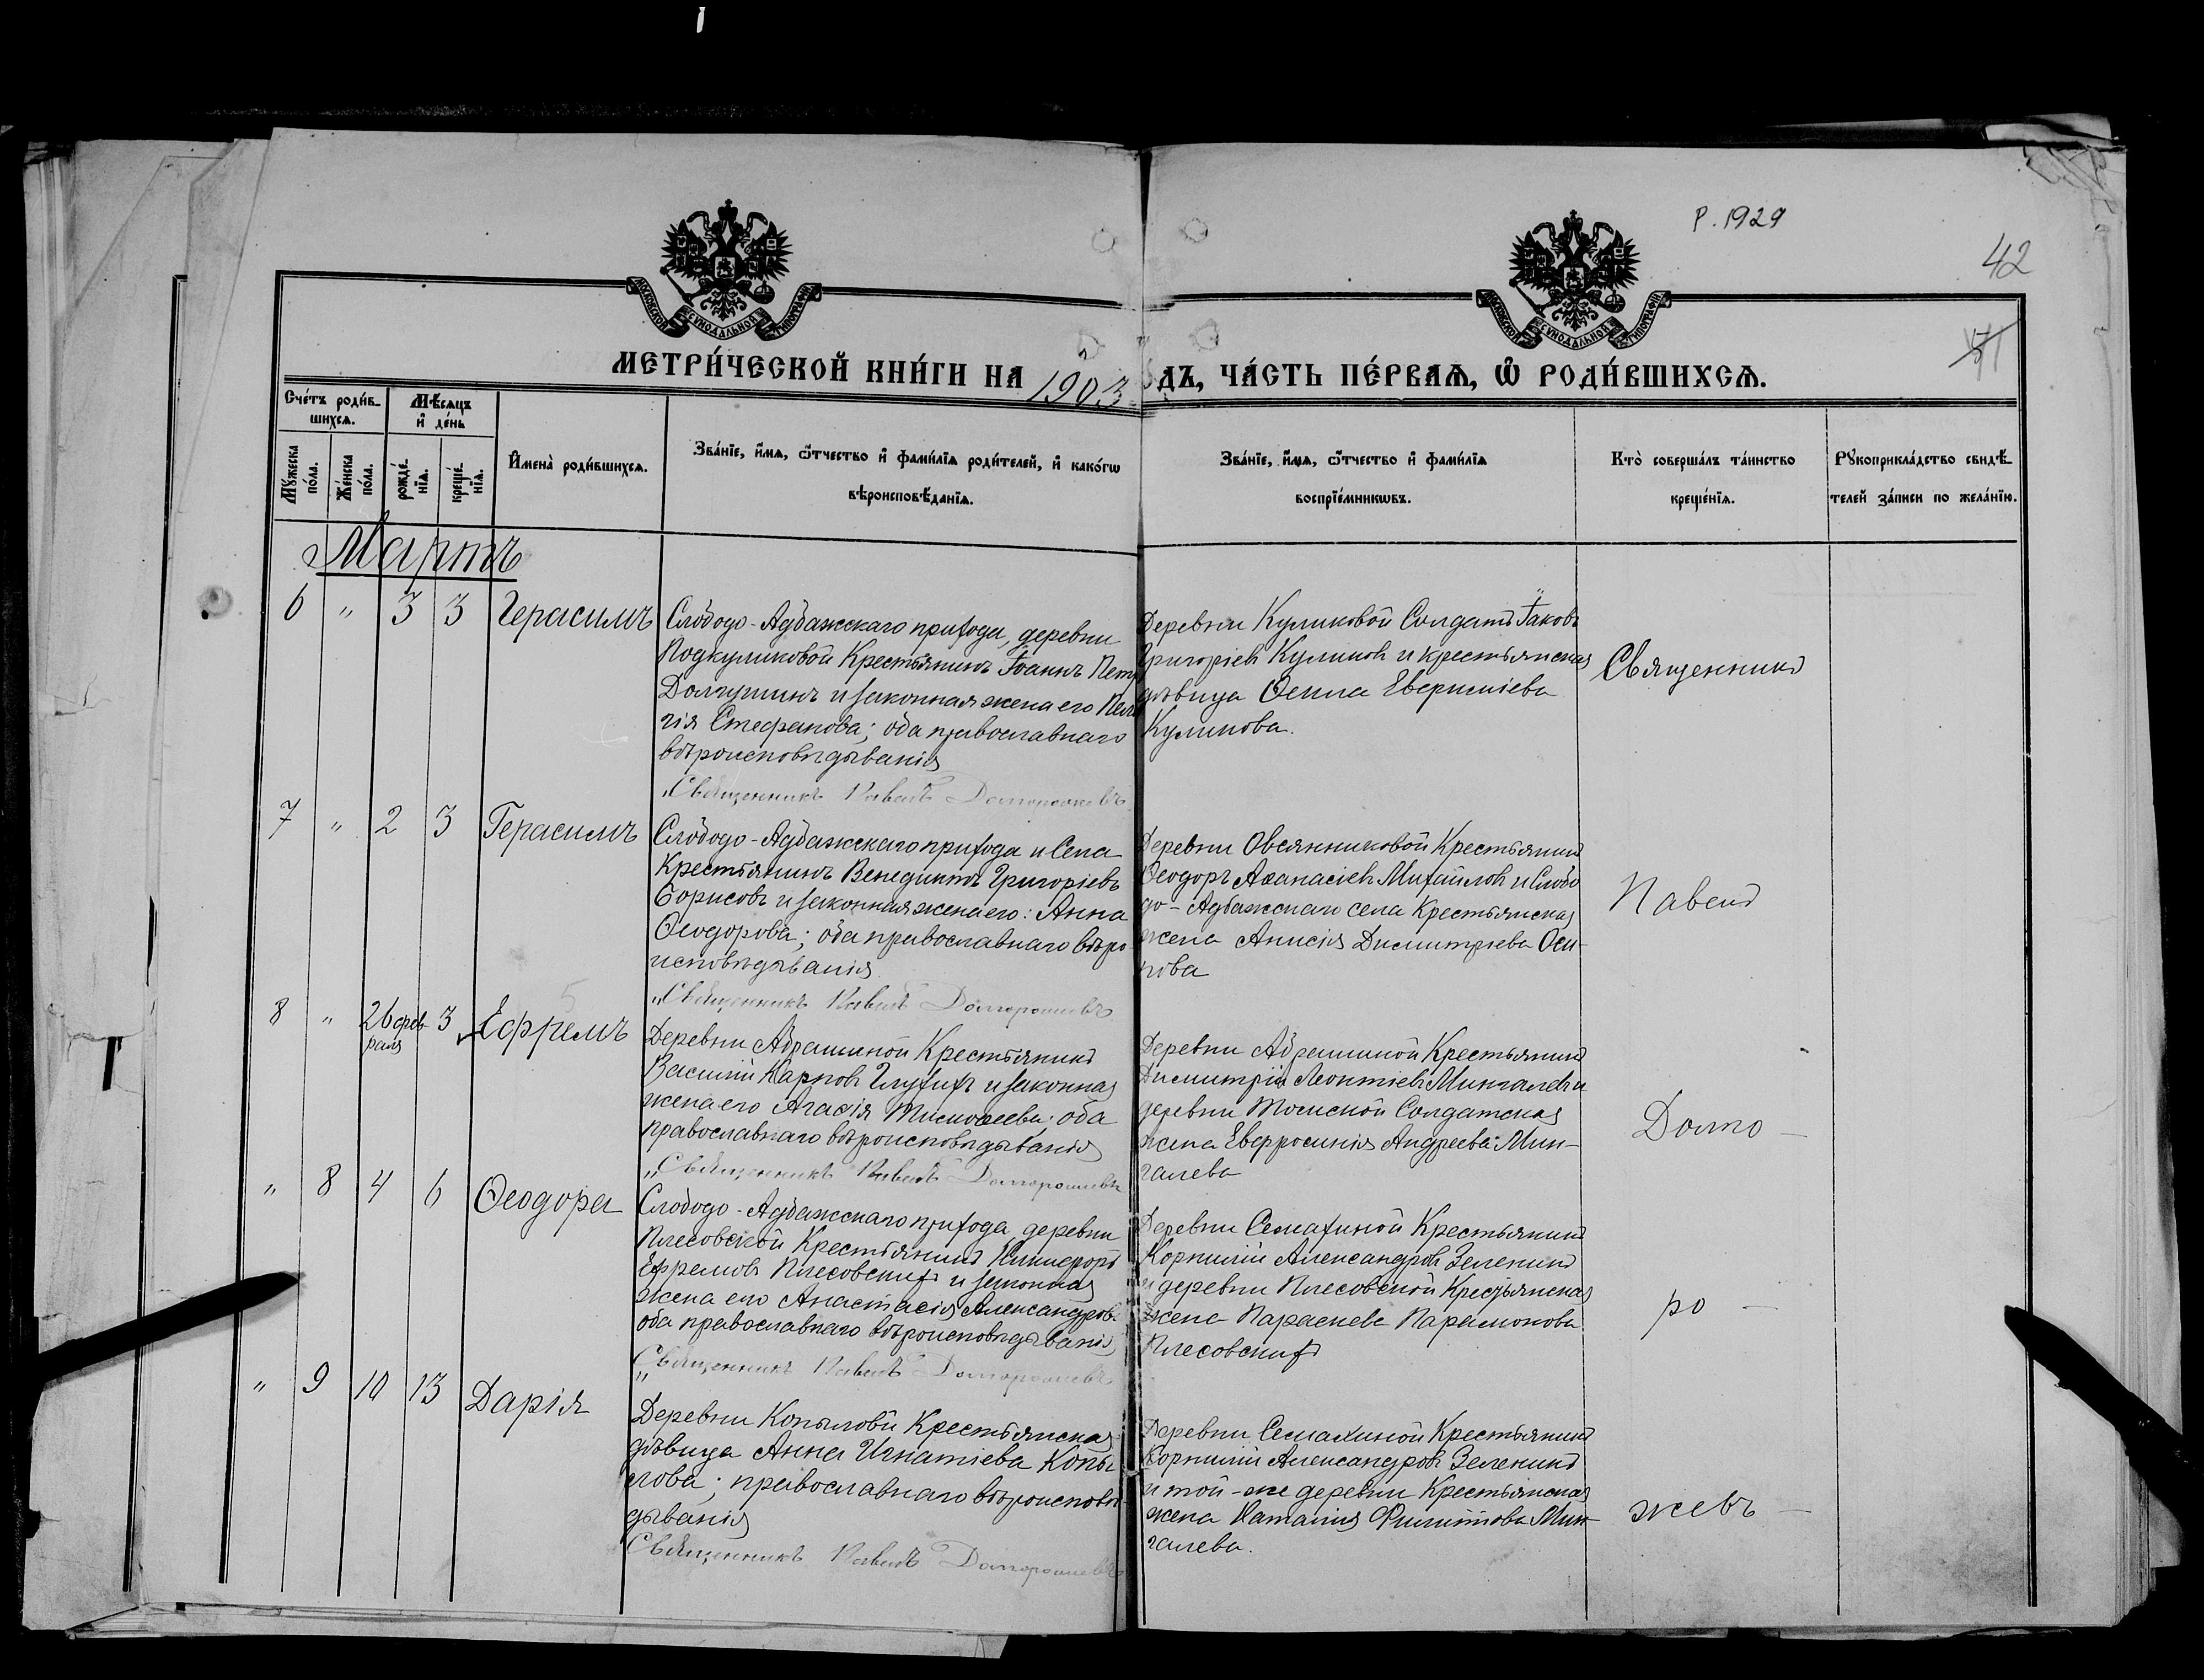 Р. 1929
42
МОСКОВСКОЙ СѴНОДАЛЬНОЙ ТИПОГРАФІИ
МОСКОВСКОЙ СѴНОДАЛЬНОЙ ТИПОГРАФІИ
МЕТРИ́ЧЕСКОЙ КНИ́ГИ НА 1903 ДЪ, ЧА́СТЬ ПЕ́РВАѦ, Ѡ РОДИ́ВШИХСѦ.
Сче́тъ роди́в-
шихсѧ.
Мѣ́сѧцъ
и҆ де́нь
Мꙋ́жеска по́ла.
Же́нска по́ла.
рожде́-нїѧ.
креще́-нїѧ.
И҆мена̀ роди́вшихсѧ.
Зва́нїе, и҆́мѧ, ѻ҆́тчество и҆ фами́лїѧ роди́телей, и҆ како́гѡ
вѣроисповѣ́данїѧ.
Зва́нїе, и҆́мѧ, ѻ҆́тчество и҆ фами́лїѧ
воспрїе́мникѡвъ.
Кто̀ соверша́лъ та́инство
креще́нїѧ.
Рꙋкоприкла́дство свидѣ́-
телей за́писи по жела́нїю.
Мартъ
6 " 3 3 Герасимъ
Слободо-Адбажскаго прихода, деревни
Подкуликовой Крестьянинъ Іоаннъ Петр
Долгушинъ и законная жена его Пела
гія Стефанова; оба православнаго
вѣроисповѣдыванія
"Священникъ Павелъ Долгорожевъ
Деревни Куликовой Солдатъ Іаковъ
Григоріевъ Куликовъ и крестьянская
дѣвица Ѳекла
Куликова.
Священникъ
7 " 2 3 Герасимъ
Слободо-Адбажскаго прихода и Села
Крестьянинъ Венедиктъ Григоріевъ
Борисовъ и законная жена его: Анна
Ѳеодорова; оба православнаго вѣро
исповѣдыванія
"Священникъ Павелъ Долгорожевъ
Деревни Овсянниковой Крестьянинъ
Ѳеодоръ Аѳанасіевъ Михайловъ и Слобо
до-Адбажскаго села Крестьянская
жена Анисія Димитріева Оси-
пова
Павелъ
8 " 26 фев-
раля 3 Ефремъ
5
Деревни Абрашиной Крестьянинъ
Василій Карповъ Глухихъ и законная
жена его Агаѳія Тимоѳеева; оба
православнаго вѣроисповѣдыванія
"Священникъ Павелъ Долгорожевъ
Деревни Абрашиной Крестьянинъ
Димитрій Леонтіевъ Мингалевъ и
деревни Томской Солдатская
жена Евфросинія Андреева Мин-
галева
Долго-
" 8 4 6 Ѳеодора
Слободо-Адбажскаго прихода, деревни
Плесовской Крестьянинъ Никифоръ
Ефремовъ Плесовскихъ и законная
жена его Анастасія Александрова
оба православнаго вѣроисповѣдыванія
"Священникъ Павелъ Долгорожевъ
Деревни Семахиной Крестьянинъ
Корнилій Александровъ Зеленинъ
и деревни Плесовской Крестьянская
жена Параскева Парамонова
Плесовскихъ
ро -
" 9 10 13 Дарія
Деревни Копыловой Крестьянская
дѣвица Анна Игнатіева Копы
лова; православнаго вѣроисповѣ-
дыванія
Священникъ Павелъ Долгорожевъ
Деревни Семахиной Крестьянинъ
Корнилій Александровъ Зеленинъ
и той-же деревни Крестьянская
жена Наталія Филиппова Мин-
галева.
жевъ -